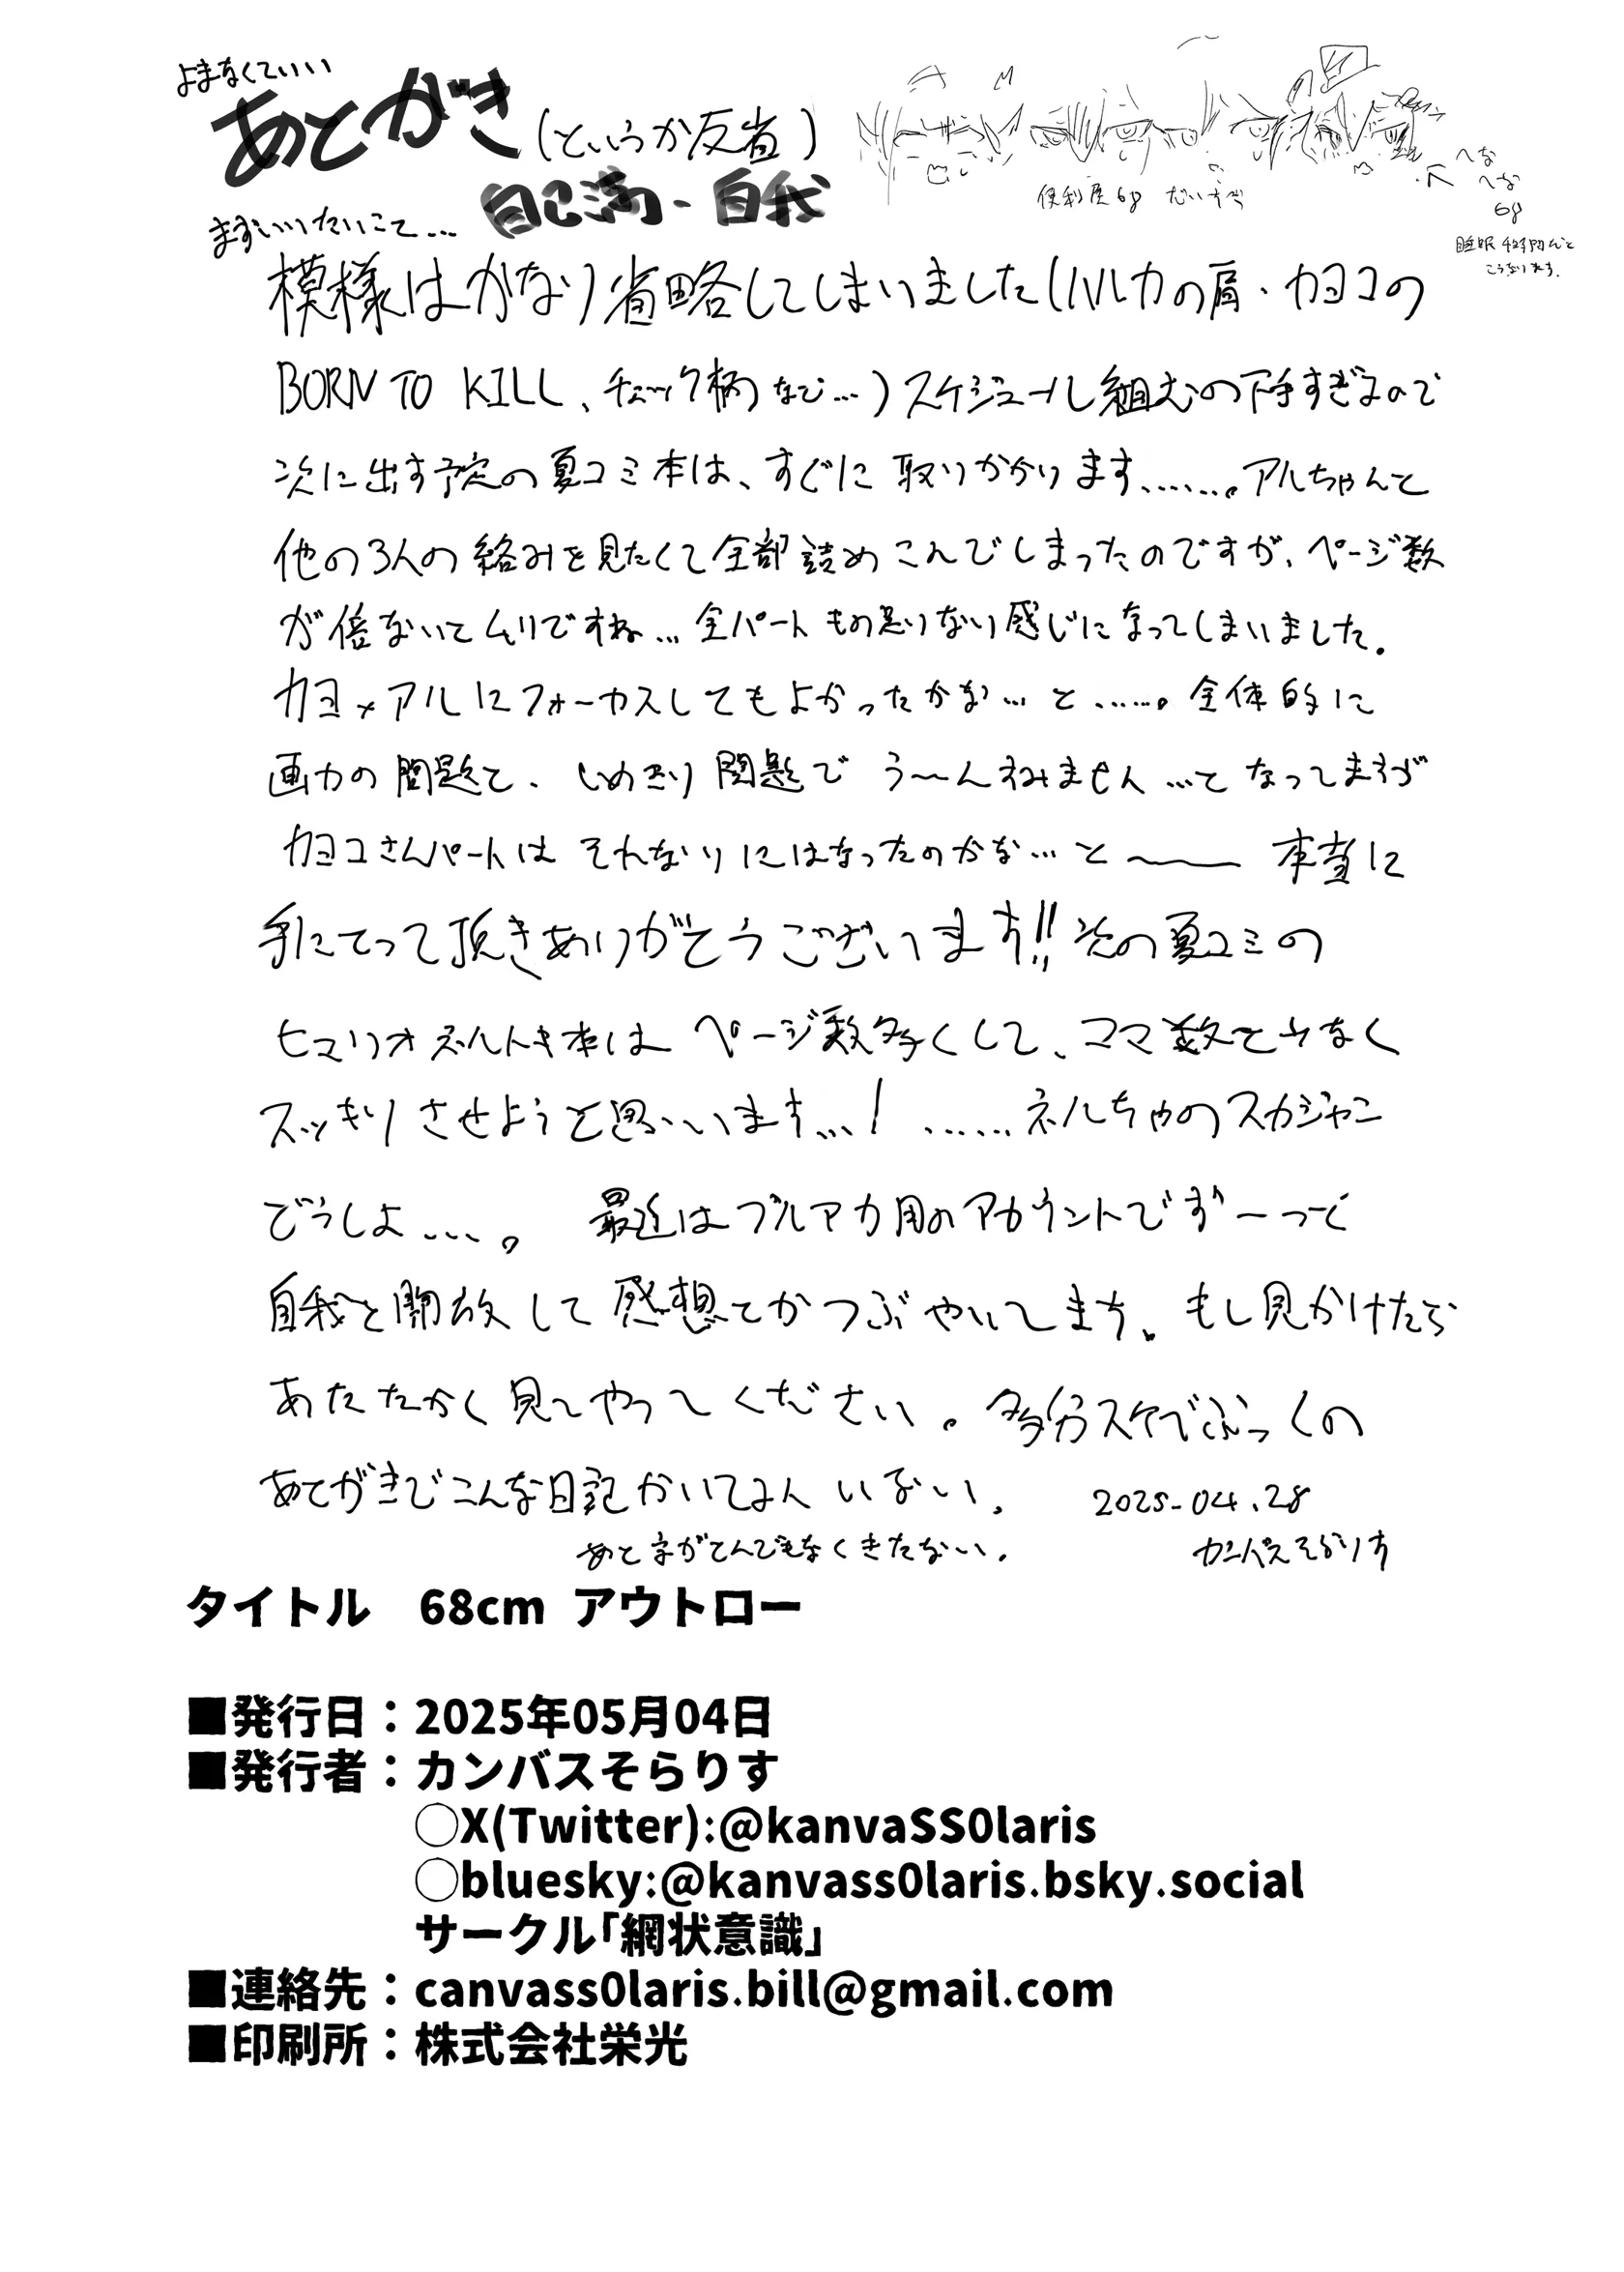 よまなくていい
あとがき(というか反省)
自己満・自我
便利屋68 だいすき
へな
へな
68
睡眠
こうなります.
まずいいたいこと…
模様はかなり省略してしまいました(ハルカの肩・カヨコの
BORN TO KILL、チェック柄など…)スケジュール組むの下手すぎるので
次に出す予定の夏コミ本は、すぐに取りかかります……。アルちゃんと
他の3人の絡みを見たくて全部詰めこんでしまったのですが、ページ数
が倍ないとムリですね…全パートもの足りない感じになってしまいました.
カヨ×アルにフォーカスしてもよかったかな…と……。全体的に
画力の問題と、しめきり問題でう〜んすみません…となってますが
カヨコさんパートはそれなりにはなったのかな…と〜 本当に
手にとって頂きありがとうございます!!次の夏コミの
ヒマリオネルトキ本はページ数多くして、コマ数を少なく
スッキリさせようと思います…!……ネルちゃのスカジャン
どうしよ…。最近はブルアカ用のアカウントでずーっと
自我を開放して感想とかつぶやいてます。もし見かけたら
あたたかく見てやってください。多分スケベぶっくの
あとがきでこんな日記かいてる人いない.
2025-04.28
あと字がとんでもなくきたない.
カンバスそらりす
タイトル 68cm アウトロー
■発行日：2025年05月04日
■発行者：カンバスそらりす
○X(Twitter):@kanvaSS0laris
○bluesky:@kanvass0laris.bsky.social
サークル「網状意識」
■連絡先：canvass0laris.bill@gmail.com
■印刷所：株式会社栄光